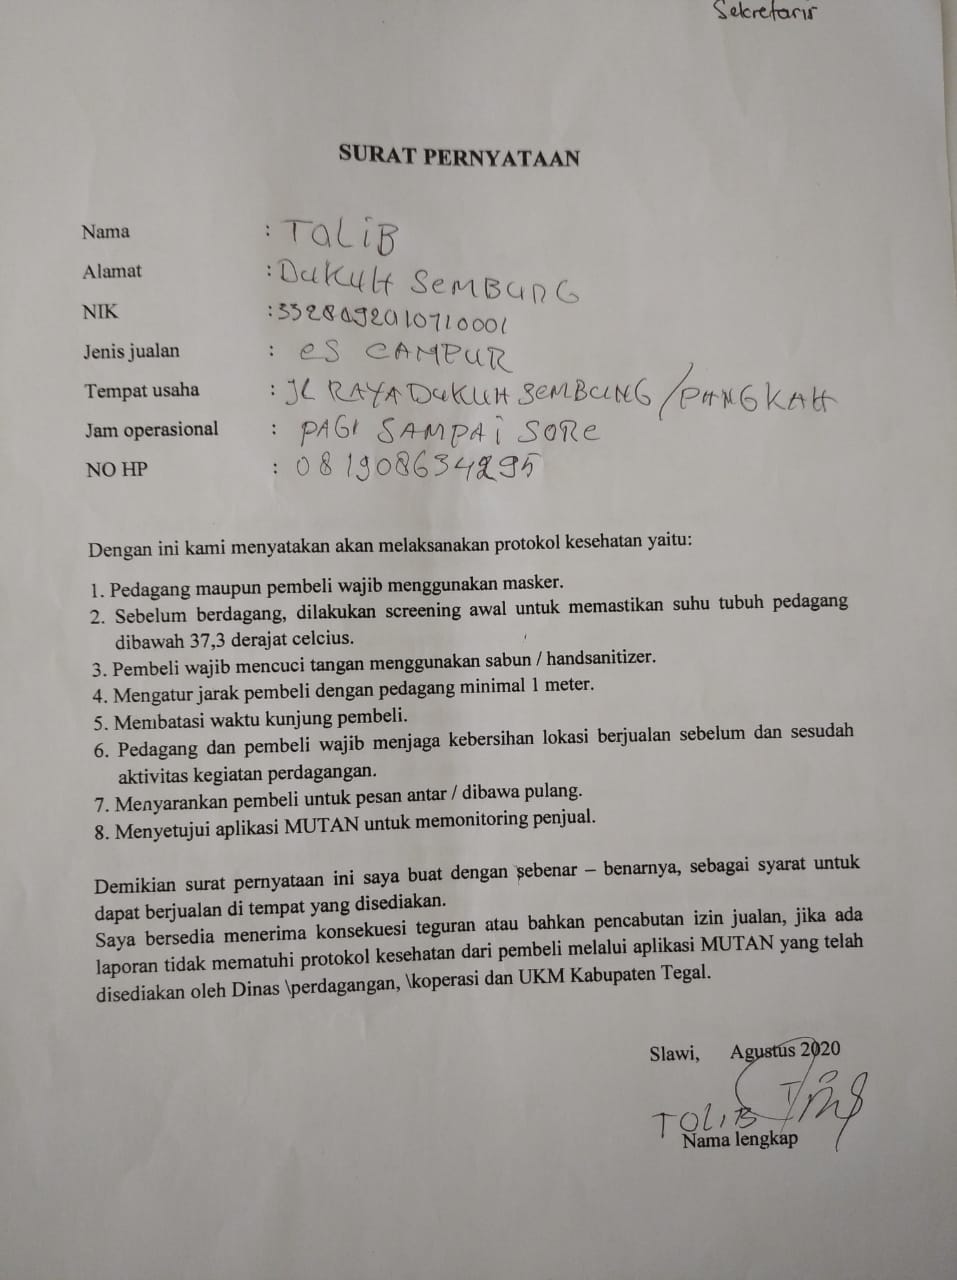 Sekretaris
SURAT PERNYATAAN
Nama : TALIB
Alamat : DUKUH SEMBUNG
NIK : 3328092010710001
Jenis jualan : eS CAMPUR
Tempat usaha : JL RAYA DUKUH SEMBUNG / PANGKAH
Jam operasional : PAGI SAMPAI SORE
NO HP : 081908634295
Dengan ini kami menyatakan akan melaksanakan protokol kesehatan yaitu:
1. Pedagang maupun pembeli wajib menggunakan masker.
2. Sebelum berdagang, dilakukan screening awal untuk memastikan suhu tubuh pedagang
dibawah 37,3 derajat celcius.
3. Pembeli wajib mencuci tangan menggunakan sabun / handsanitizer.
4. Mengatur jarak pembeli dengan pedagang minimal 1 meter.
5. Membatasi waktu kunjung pembeli.
6. Pedagang dan pembeli wajib menjaga kebersihan lokasi berjualan sebelum dan sesudah
aktivitas kegiatan perdagangan.
7. Menyarankan pembeli untuk pesan antar / dibawa pulang.
8. Menyetujui aplikasi MUTAN untuk memonitoring penjual.
Demikian surat pernyataan ini saya buat dengan sebenar – benarnya, sebagai syarat untuk
dapat berjualan di tempat yang disediakan.
Saya bersedia menerima konsekuesi teguran atau bahkan pencabutan izin jualan, jika ada
laporan tidak mematuhi protokol kesehatan dari pembeli melalui aplikasi MUTAN yang telah
disediakan oleh Dinas \perdagangan, \koperasi dan UKM Kabupaten Tegal.
Slawi, Agustus 2020
TOLIB
Nama lengkap